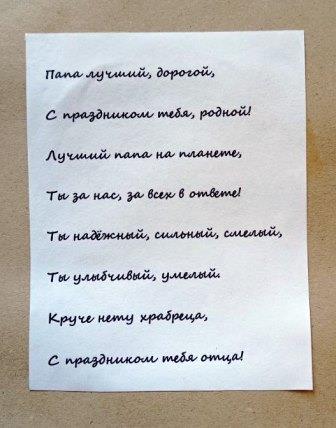 Папа лучший, дорогой,
С праздником тебя, родной!
Лучший папа на планете,
Ты за нас, за всех в ответе!
Ты надёжный, сильный, смелый,
Ты улыбчивый, умелый.
Круче нету храбреца,
С праздником тебя отца!